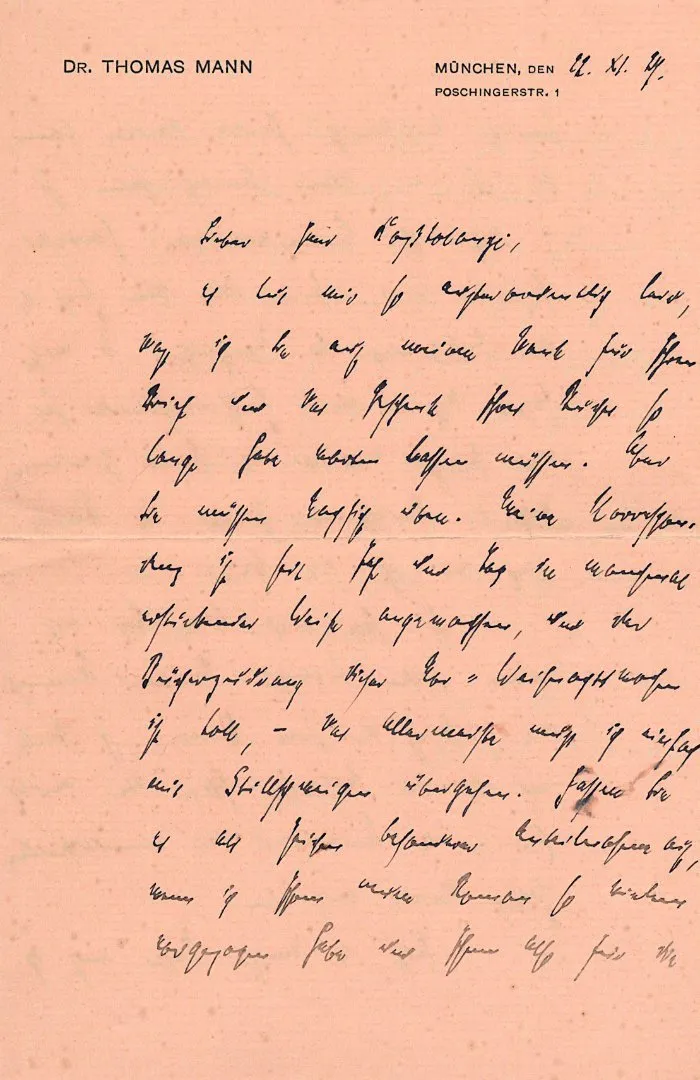 DR. THOMAS MANN
MÜNCHEN, DEN 22. XI.
POSCHINGERSTR. 1
Lieber Herr Kosztolanyi,
es tut mir so außerordentlich leid,
daß ich Sie auf meinen Dank für Ihren
Brief und das Geschenk Ihres Buches so
lange habe warten lassen müssen. Aber
Sie müssen Nachsicht üben. Meine Korrespon-
denz ist seit Jahr und Tag in manchmal
erstickender Weise angewachsen, und der
Bücherzudrang dieser Vor=Weihnachtswochen
ist toll, – das Allermeiste muß ich einfach
mit Stillschweigen übergehen. Fassen Sie
es als Zeichen besonderer Anteilnahme auf,
wenn ich so
habe und Ihnen also für die